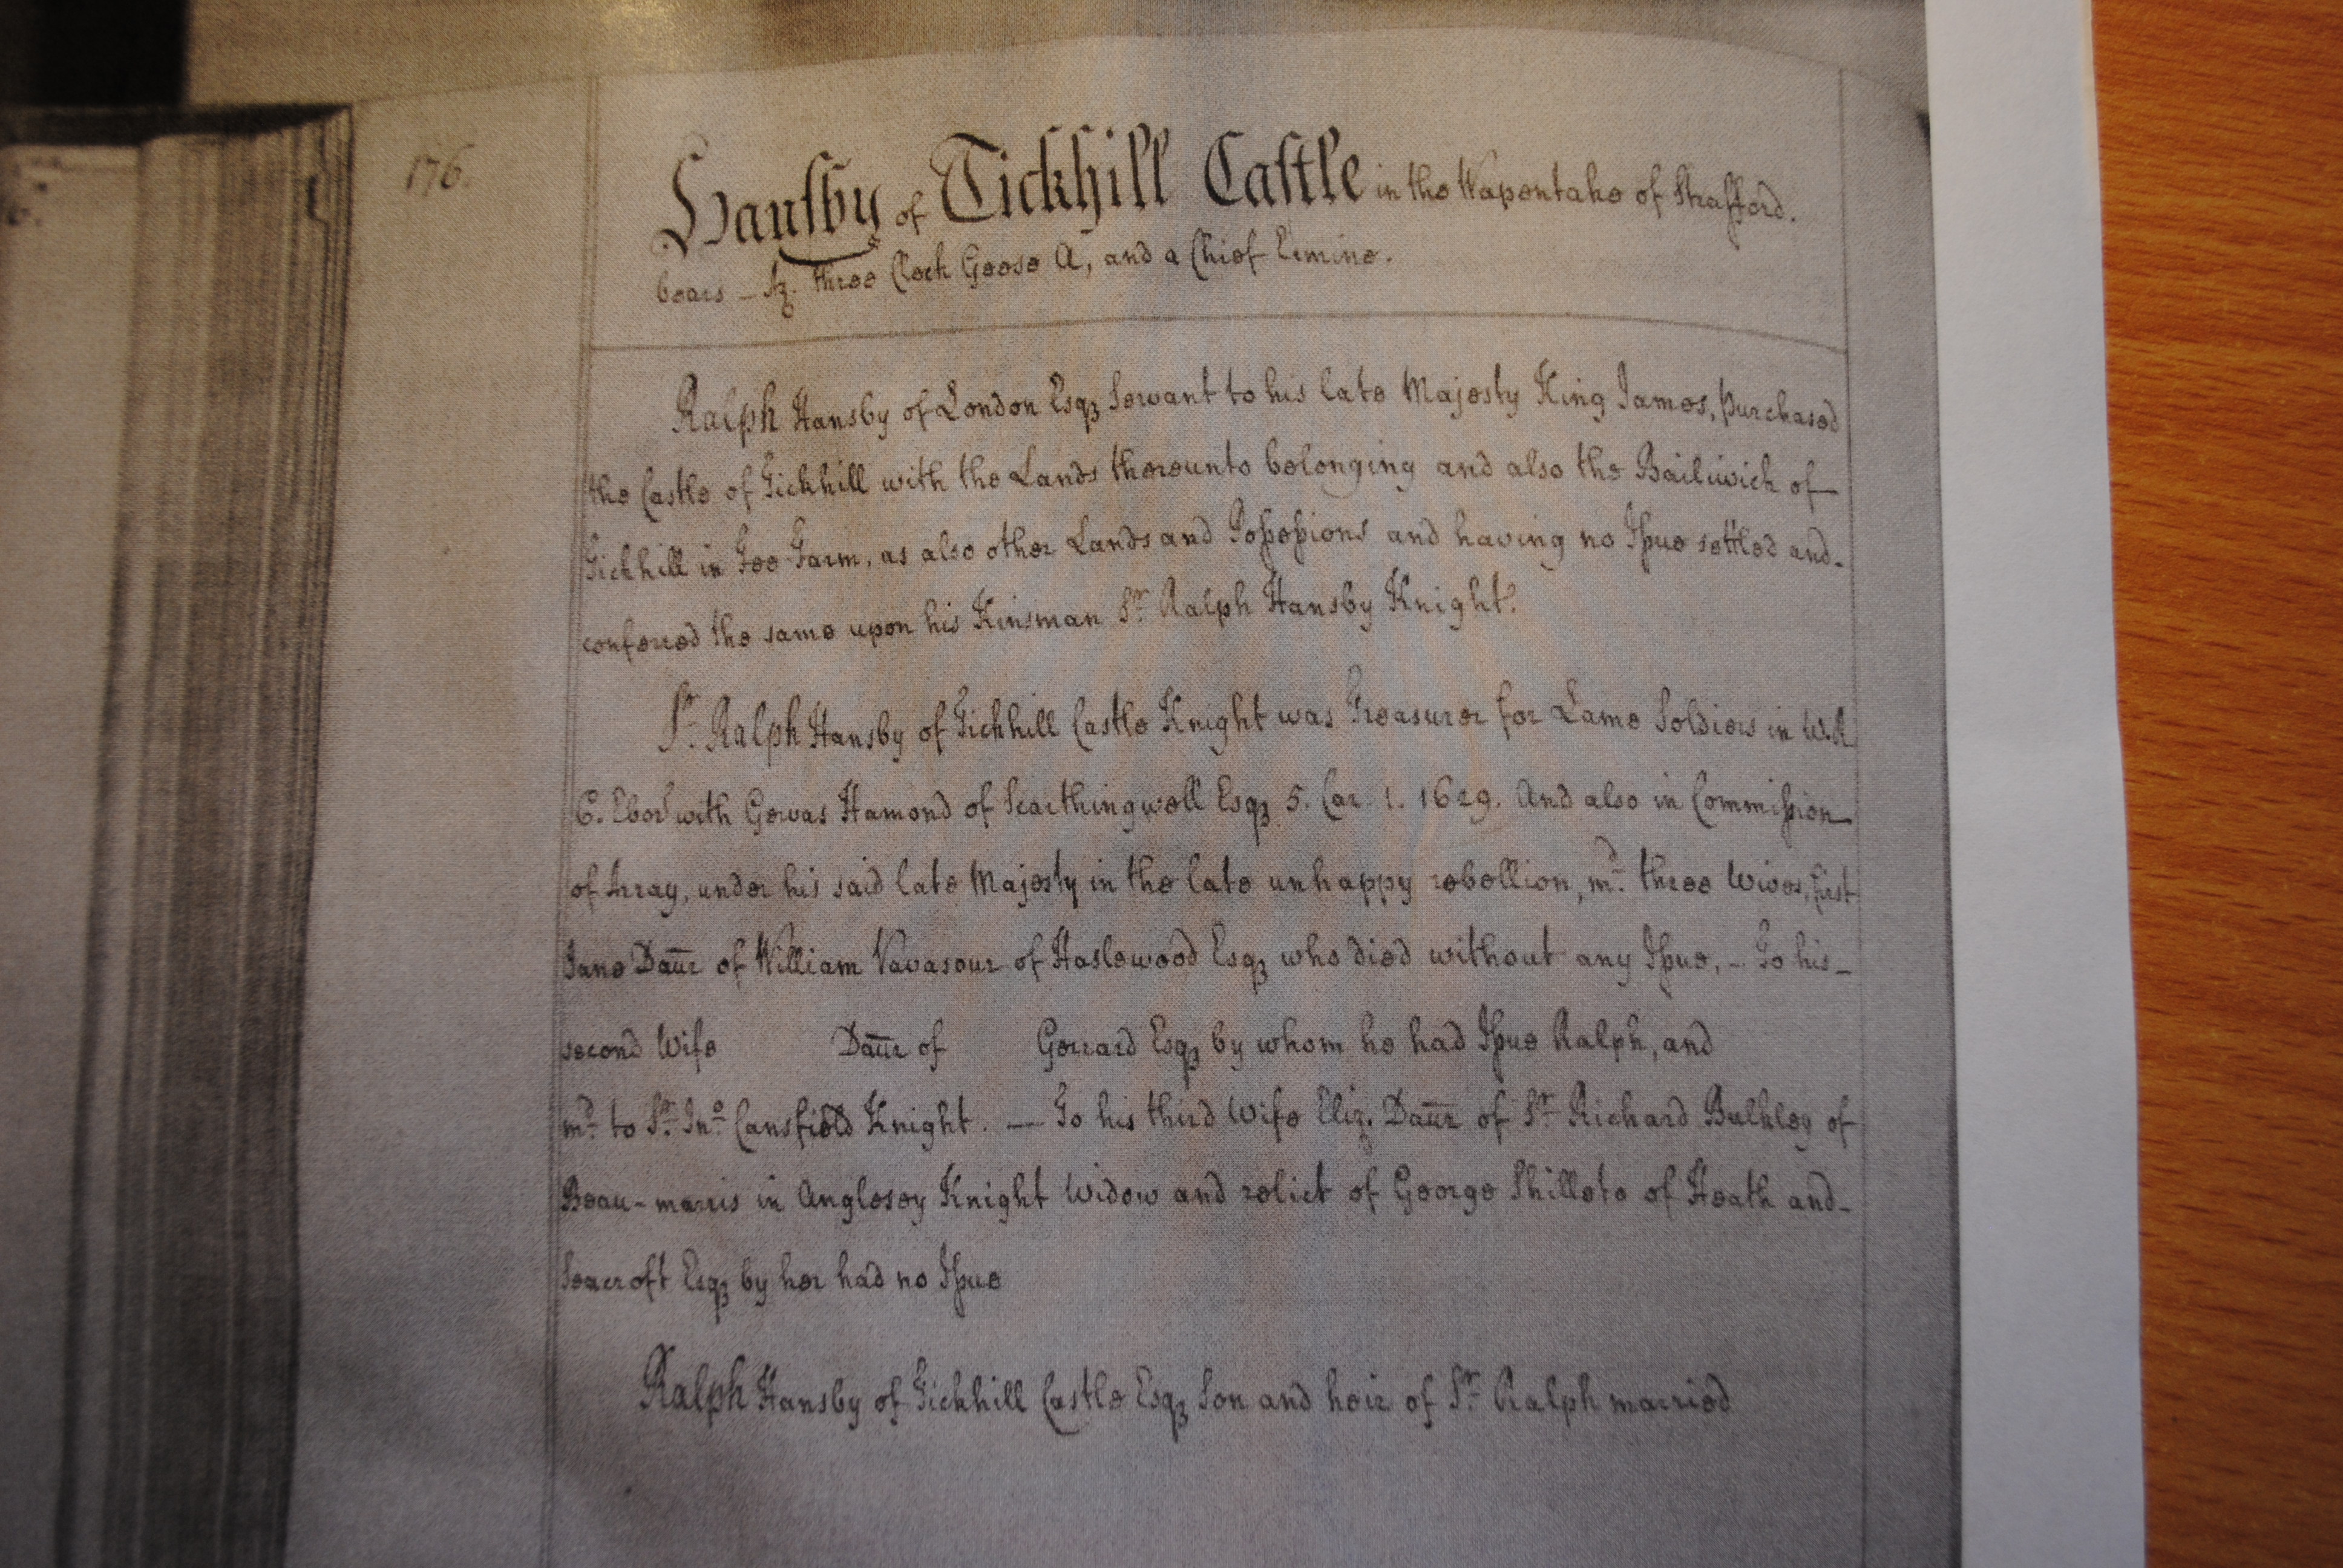 176.
Hansby of Tickhill Castle in the Wapentake of Strafford.
bears – Az. three Clock Geese A, and a Chief Ermine.
Ralph Hansby of London Esqz Servant to his late Majesty King James, purchased
the Castle of Tickhill with the Lands thereunto belonging and also the Bailiwick of
Tickhill in Fee Farm, as also other Lands and Possessions and having no Issue settled and-
conferred the same upon his Kinsman Sr. Ralph Hansby Knight.
Sr. Ralph Hansby of Tickhill Castle Knight was Treasurer for Lame Soldiers in W.R
C. Ebor with Gervas Hamond of Scarthingwell Esqz 5. Car. 1. 1629. And also in Commission
of Array, under his said late Majesty in the late unhappy rebellion, md. three Wives, first
Jane Daur of William Vavasour of Haslewood Esqz who died without any Issue, – To his –
second Wife Daur of Gerrard Esqz by whom he had Issue Ralph, and
md. to Sr. Jno. Cansfield Knight. — To his third Wife Eliz. Daur of Sr. Richard Bulkley of
Beau-marris in Anglesey Knight Widow and relict of George Shilleto of Heath and-
Seacroft Esqz by her had no Issue
Ralph Hansby of Tickhill Castle Esqz Son and heir of Sr. Ralph married